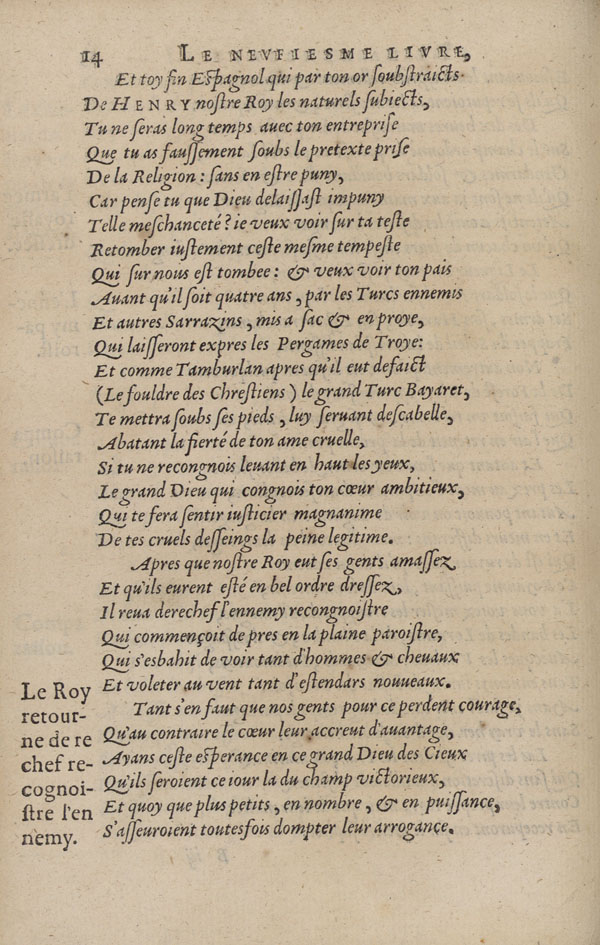 14 LE NEVFIESME LIVRE,
Et toy fin Eſpagnol qui par ton or ſoubſtraicts
De HENRY noſtre Roy les naturels ſubiects,
Tu ne ſeras long temps auec ton entrepriſe
Que tu as fauſſement ſoubs le pretexte priſe
De la Religion : ſans en eſtre puny,
Car penſe tu que Dieu delaiſſaſt impuny
Telle meſchanceté ? ie veux voir ſur ta teſte
Retomber iuſtement ceſte meſme tempeſte
Qui ſur nous eſt tombee : & veux voir ton pais
Auant qu'il ſoit quatre ans, par les Turcs ennemis
Et autres Sarrazins, mis a ſac & en proye,
Qui laiſſeront expres les Pergames de Troye:
Et comme Tamburlan apres qu'il eut defaict
(Le fouldre des Chreſtiens) le grand Turc Bayaret,
Te mettra ſoubs ſes pieds, luy ſeruant deſcabelle,
Abatant la fierté de ton ame cruelle,
Si tu ne recongnois leuant en haut les yeux,
Le grand Dieu qui congnois ton cœur ambitieux,
Qui te fera ſentir iuſticier magnanime
De tes cruels deſſeings la peine legitime.
Apres que noſtre Roy eut ſes gents amaſſez
Et qu'ils eurent eſté en bel ordre dreſſez,
Il reua derechef l'ennemy recongnoiſtre
Qui commençoit de pres en la plaine paroiſtre,
Qui s'esbahit de voir tant d'hommes & cheuaux
Et voleter au vent tant d'eſtendars nouueaux.
Tant s'en faut que nos gents pour ce perdent courage,
Qu'au contraire le cœur leur accreut d'auantage,
Ayans ceſte eſperance en ce grand Dieu des Cieux
Qu'ils ſeroient ce iour la du champ victorieux,
Et quoy que plus petits, en nombre, & en puiſſance,
S'aſſeuroient toutesfois dompter leur arrogançe.
Le Roy
retour-
ne de re
chef re-
cognoi-
ſtre l'en
nemy.